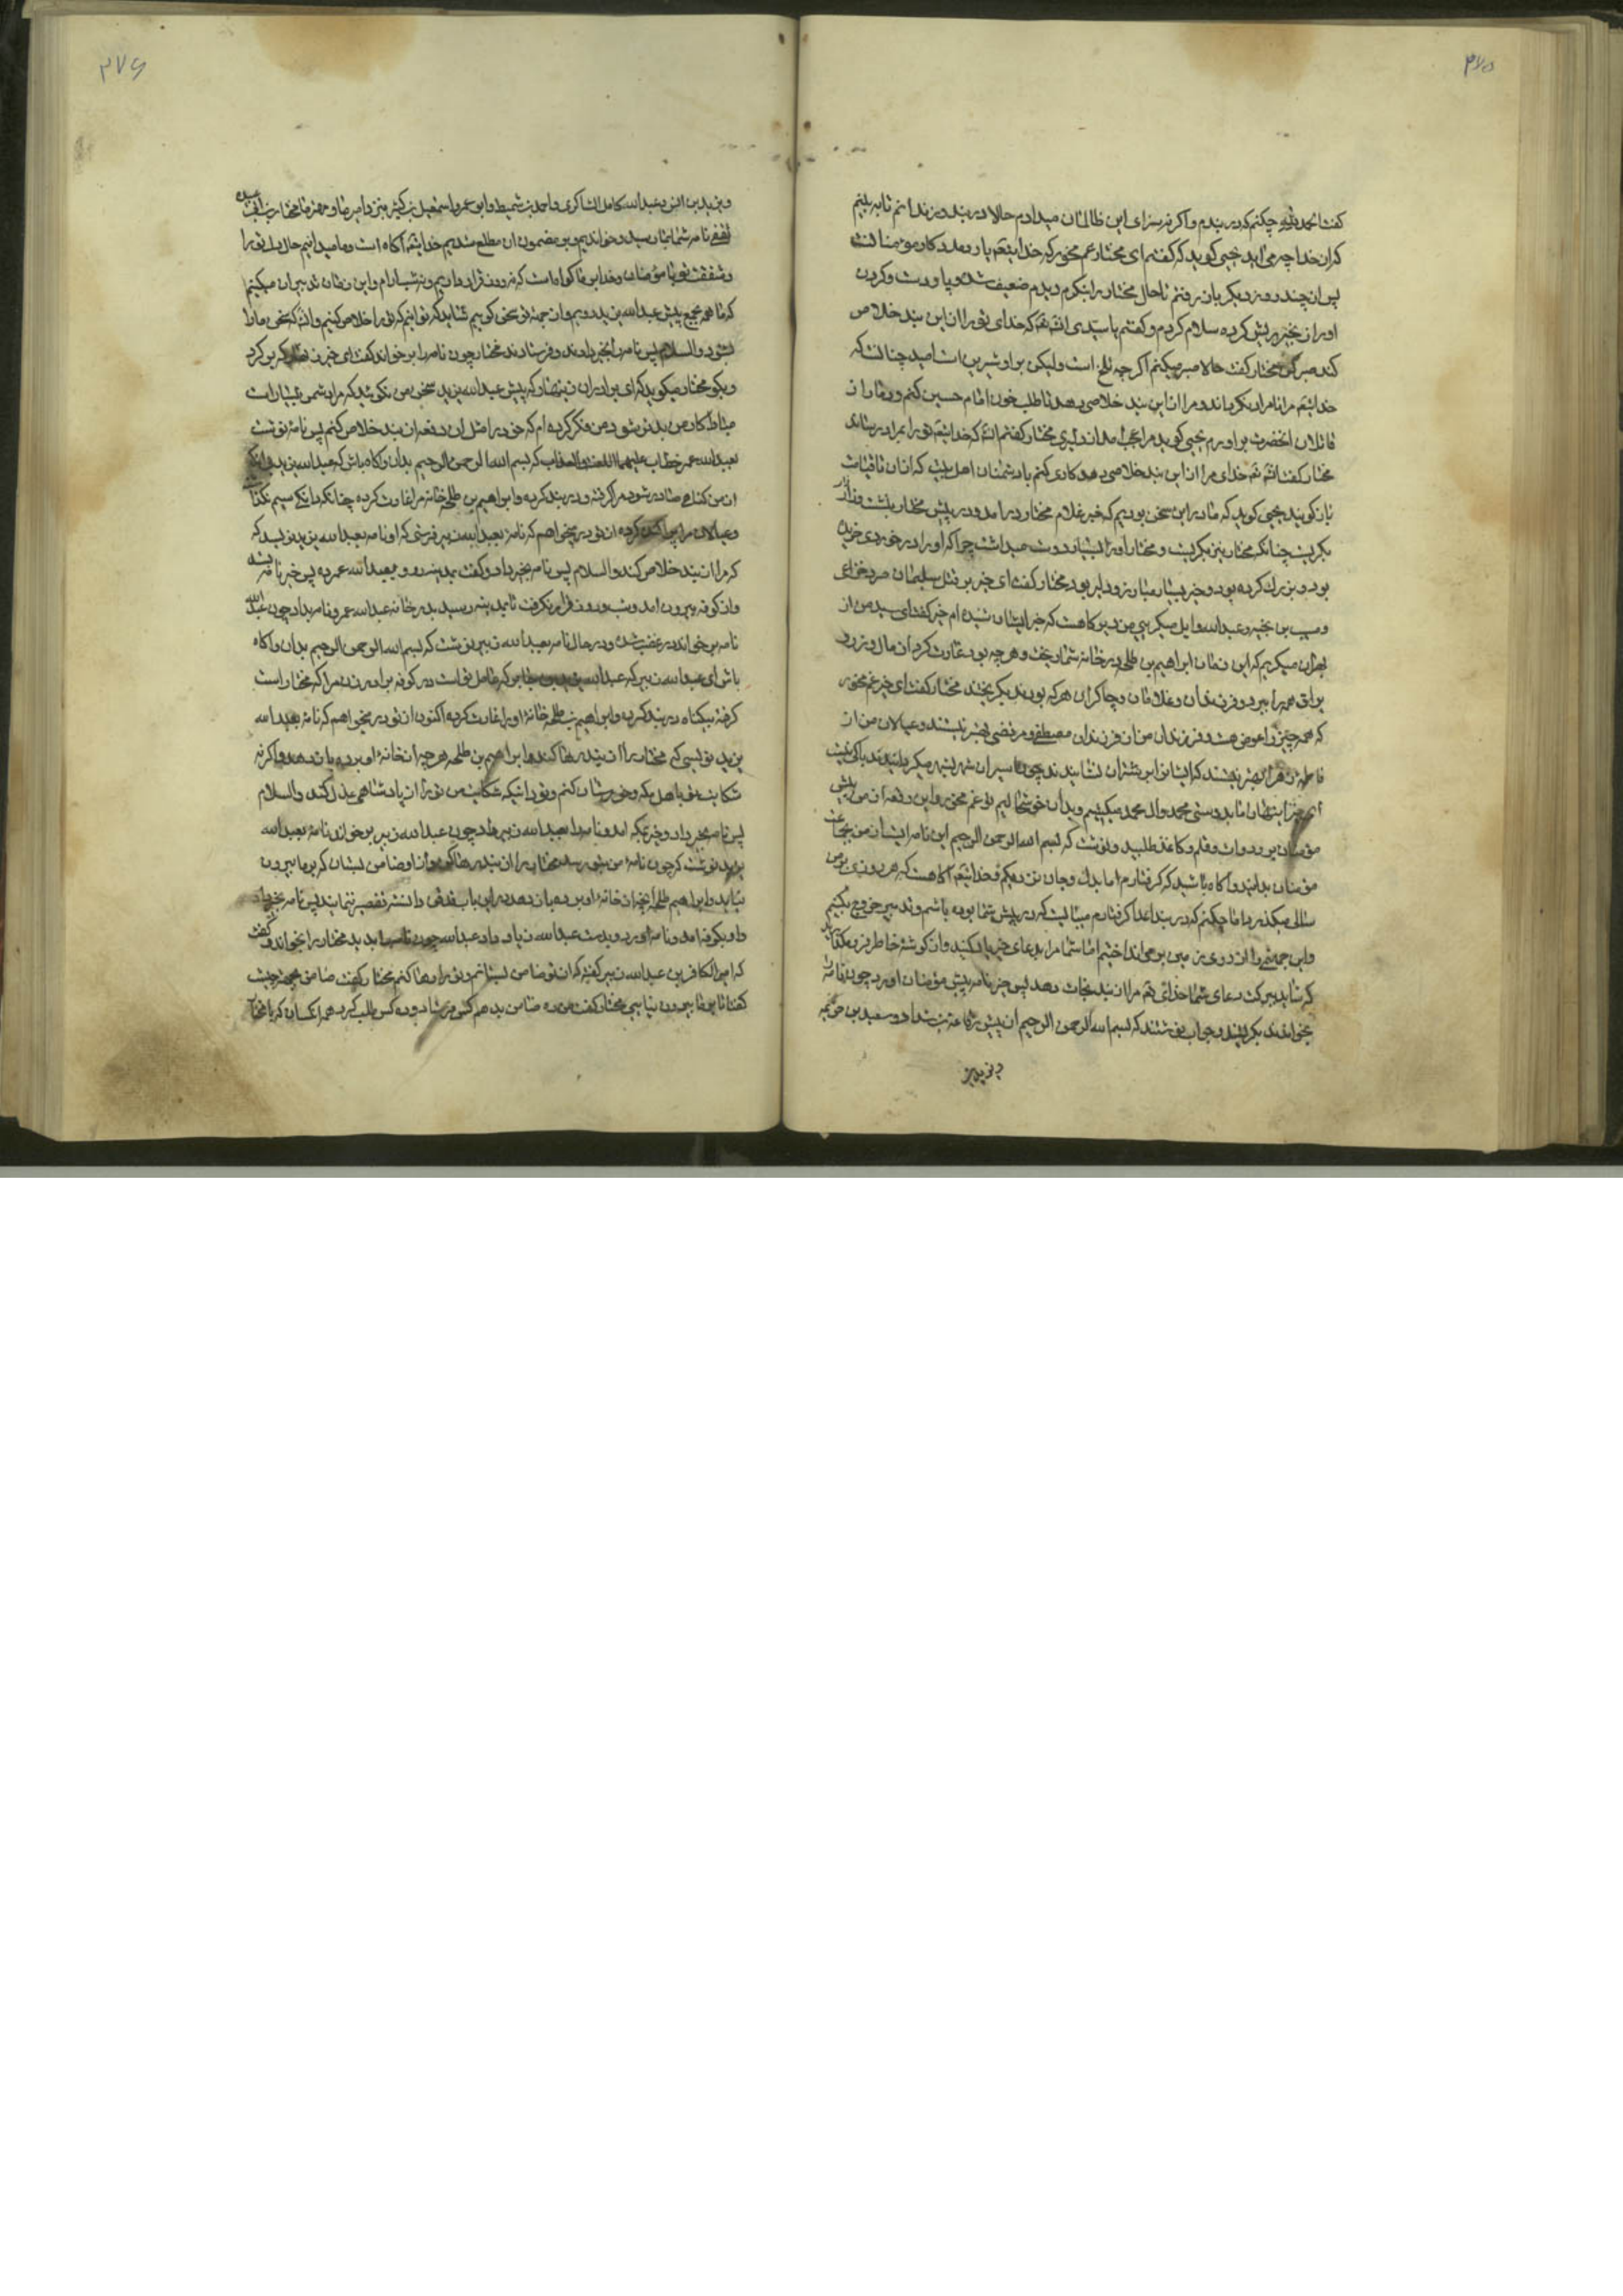 ۳۷۵
کفت الحمد لله چکنم که در بندم و اکر نه سزای این ظالمان میدادم حالا در بند و زندانم تا به بینم
که از خدا چه می اید یحیی کوید که کفتم ای مختار غم مخور که خدایتعالی یار و مدد کار مومنانست
پس از چند روز دیکر باز رفتم تا حال مختار را بنکرم دیدم ضعیف شده و پا و دست و کردن
او را زنجیر ریش کرده سلام کردم و کفتم یا سیدی انشاءالله که خدای تو را از این بند خلاص
کند صبر کن مختار کفت حالا صبر میکنم اکر چه تلخ است ولیکن بر او شیرین است امید چنانست که
خدایتعالی مرا نامراد نکرداند و مرا از این بند خلاصی دهد تا طلب خون امام حسین کنم و دمار از
قاتلان انحضرت براورم یحیی کوید مرا عجب امد از دلیری مختار کفتم انشاءالله که خدایتعالی تو را بمراد رساند
مختار کفت انشاءالله خدای مرا از این بند خلاصی دهد کاری کنم با دشمنان اهل بیت که از ان تا قیامت
باز کویند یحیی کوید که ما در این سخن بودیم که خیر غلام مختار در امد و در پیش مختار بنشست و زار
بکریست چنانکه مختار نیز بکریست و مختار او را بسیار دوست میداشت چرا که او را در خوردی خریده
بود و بزرک کرده بود و خیر بسیار مبارز و دلیر بود مختار کفت ای خیر بر قتل سلیمان صرد خزاعی
و مسیب بن نجبه و عبدالله وایل میکریی من دیر کاهست که خبر ایشان شنیده ام خیر کفت ای سید من از
بهر ان میکریم که این زمان ابراهیم بن طلحه در خانه شما ریخت و هر چه بود غارت کرد از مال و زر و
یراق همه را ببرد و فرزندان و غلامان و چاکران هر که بودند بکریختند مختار کفت ای خیر غم مخور
که همه چیز را عوض هست و فرزندان من از فرزندان مصطفی و مرتضی بهتر نیستند و عیالان من از
فاطمه زهرا بهتر نیستند که ایشانرا بر شتران نشانیدند چون اسیران شهر بشهر میکردانیدند باکی نیست
ای خیر اینها را ما بدوستی محمد و ال محمد میکشیم و بدان خوشحالیم تو غم مخور و این رقعه از من پیش
مؤمنان بر و دوات و قلم و کاغذ طلبید و نوشت که بسم الله الرحمن الرحیم این نامه ایست از من بجماعت
مؤمنان بدانید و اکاه باشید که کرفتارم اما بدل و جان نزدیکم و خدایتعالی اکاهست که هر روزی بر من
سالی میکذرد اما چکنم که در بند اعدا کرفتارم میبایست که در پیش شما بوده باشم و تدبیر خروج بکنیم
و این جمعی را از روی زمین براندازیم اما شما مرا بدعای خیر یاد کنید و از کوشه خاطر فرو مکذارید
که شاید ببرکت دعای شما خدایتعالی مرا از بند نجات دهد پس خیر نامه پیش مؤمنان اورد چون نامه را
بخواندند بکریستند و جواب نوشتند که بسم الله الرحمن الرحیم از پیش رفاعة بن شداد و سعید بن خزیمه
و یزید بن
۳۷۶
و یزید بن انس و عبدالله کامل الشاکری و احمد بن شمیط و ابو عمر و اسمعیل بن کثیر بنزد امیر ما و مهتر ما مختار بن ابی عبیده
ثقفی نامه شما بما رسید و خواندیم و بر مضمون ان مطلع شدیم خدایتعالی اکاه است و ما میدانیم حال دل تو را
و شفقت تو با مؤمنان و خدا بر ما کواه است که نه روز قرار داریم و نه شب ارام و این زمان تدبیر ان میکنیم
که ما همه جمع پیش عبدالله بن یزید رویم و از جهة تو سخن کوییم شاید که توانیم که تو را خلاص کنیم و انشاءالله که سخن ما را
بشنود والسلام پس نامه را بخیر دادند و فرستادند مختار چون نامه را بر خواند کفت ای خیر زود باز کرد
و بکو مختار میکوید که ای برادران زینهار که پیش عبدالله یزید سخن من نکوئید که مرا دشمن بسیار است
مبادا کار من بدتر شود من فکر کرده ام که خود را مثل ان دفعه از بند خلاص کنم پس نامه نوشت
بعبدالله عمر خطاب علیهما اللعنه والعذاب که بسم الله الرحمن الرحیم بدان و اکاه باش که عبدالله بن یزید بی انکه
از من کناهی صادر شود مرا کرفته و در بند کرده و ابراهیم بن طلحه خانه مرا غارت کرده چنانکه دانکی سیم نکذاشته
و عیالان مرا پراکنده کرده از تو در میخواهم که نامه بعبدالله زبیر فرستی که او نامه بعبدالله بن یزید نویسد که
که مرا از بند خلاص کند والسلام پس نامه بخیر داد و کفت بمدینه رو و بعبدالله عمر ده پس خیر نامه بستد
و از کوفه بیرون امد و شب و روز قرار نکرفت تا بمدینه رسید بدر خانه عبدالله عمر و نامه بداد چون عبدالله
نامه بر خواند در غضب شد و در حال نامه بعبدالله زبیر نوشت که بسم الله الرحمن الرحیم بدان و اکاه
باش ای عبدالله زبیر که عبدالله یزید بن جابر که عامل تو است در کوفه برادر زن مرا که مختار است
کرفته بیکناه در بند کرده و ابراهیم بن طلحه خانه او را غارت کرده اکنون از تو در میخواهم که نامه بعبدالله
یزید نویسی که مختار را از بند رها کند و ابراهیم بن طلحه هر چه از خانه او برده باز دهد و اکر نه
شکایت تو باهل مکه و خویشان کنم و تو دانی که شکایت من تو را از پادشاهی عزل کند والسلام
پس نامه بخیر داد و خیر بمکه امد و نامه را بعبدالله زبیر داد چون عبدالله زبیر بر خواند نامه بعبدالله
یزید نوشت که چون نامه من بتو رسد مختار را از بند رها کن و از او ضامن بستان که بر ما بیرون
نیاید و ابراهیم طلحه انچه از خانه او برده باز دهد در این باب قدغن دانسته تقصیر ننمایند پس نامه بخیر داد
داد بکوفه امد و نامه اورد و بدست عبدالله زیاد داد عبدالله چون نامه بدید مختار را بخواند و کفت
که امیر الکافرین عبدالله زبیر کفته که از تو ضامن بستانم و تو را رها کنم مختار کفت ضامن بجهة چیست
کفت تا بر ما بیرون نیایی مختار کفت من ده ضامن بدهم کس فرستاد و ده کس طلب کرد همه از کسان که با مختار